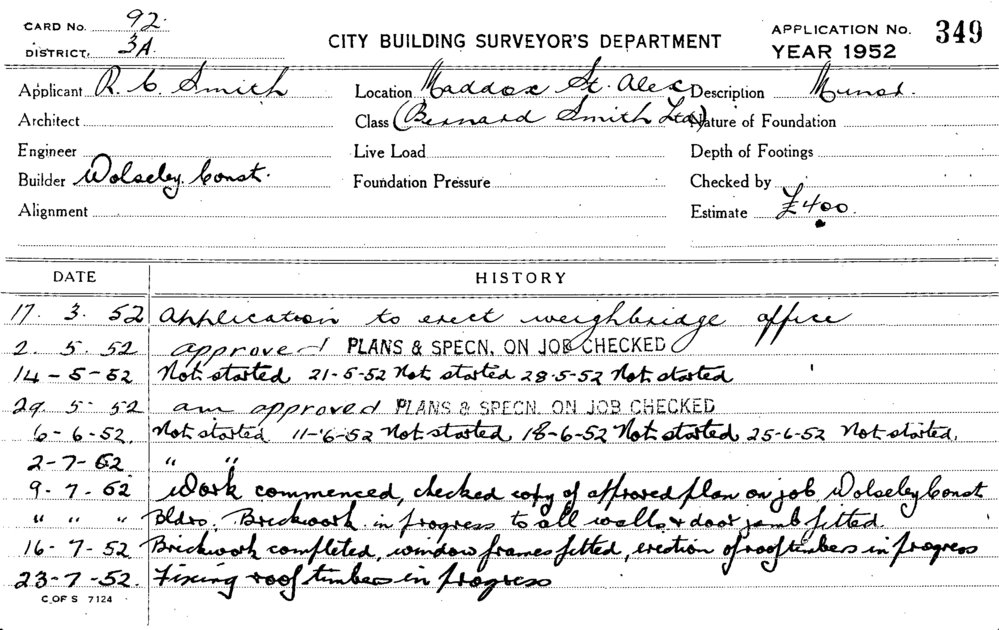 CARD No. 92.
DISTRICT. 3A.
CITY BUILDING SURVEYOR'S DEPARTMENT
APPLICATION No. 349
YEAR 1952
Applicant R. C. Smith Location Maddox St. Alex Description
Architect Class (Bernard Smith Ltd) Nature of Foundation
Engineer Live Load Depth of Footings
Builder Wolseley Const. Foundation Pressure Checked by
Alignment Estimate £400.
DATE HISTORY
17. 3. 52 Application to erect weighbridge office
2. 5. 52 approved PLANS & SPECN. ON JOB CHECKED
14-5-52 Not started 21-5-52 Not started 28-5-52 Not started
29. 5. 52 am approved PLANS & SPECN. ON JOB CHECKED
6-6-52. Not started 11-6-52 Not started 18-6-52 Not started 25-6-52 Not started.
2-7-52 " "
9-7-52 Work commenced, checked copy of approved plan on job Wolseley Const
" " " Bldrs. Brickwork in progress to all walls & door jamb fitted.
16-7-52 Brickwork completed, window frames fitted, erection of roof timbers in progress
23-7-52. Fixing roof timbers in progress
C. OF S 7124